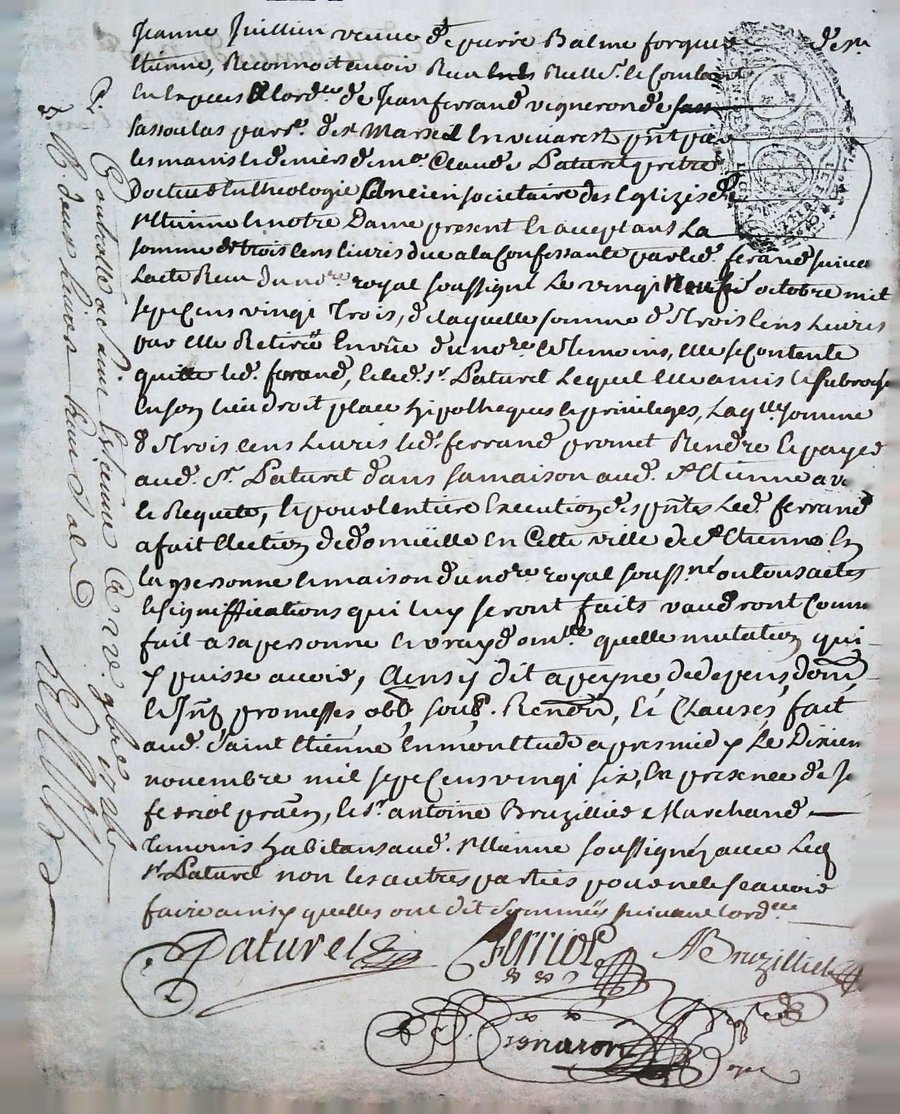 Jeanne Juillien veuve de pierre Balme forgeur de st
Etienne, Reconnoit avoir Receu
En lespece de lord.ce de Jean ferrand vigneron de
Sassoulas parr.e de st Marsel En vivarest pnt par
les mains et deniers de m.re Claude Paturel pretre
Docteur En theologie Et Ancien societaire des Eglizes de
st Etienne et notre Dame present et acceptans La
somme de trois cens livres due a la Confessante par led. ferand suivan
Lacte Receu du no.re royal soussigné Le vingt neufie octobre mil
sept Cens vingt Trois, de laquelle somme de Trois Cens Livres
par elle Retirée En vûe du no.re et temoins, elle se Contente
quitte led. ferand, et led. s.r Paturel Lequel elle a mis et subroge
en son lieu droit place hipotheques et privileges, Laq.lle somme
de Trois cens Livres led. ferrand promet Rendre et payer
aud. Sr. Paturel dans sa maison aud. st Etienne a
la Requete, Et pour lentiere Execution des pntes Led. ferrand
a fait Election de domicille en Cette ville de st Etienne En
la personne et maison du no.re royal souss.né ou tous actes
et significations qui luy seront faits vaudront Comm
fait a sa personne et vray dom.lle quelle mutation qui
y puisse avoir, Ainsy dit a peyne de depens, dom.
et Int. promesses, obl. soub. Renon, Et Clauses, fait
aud. saint Etienne En mon Etude apres midy Le Dixiem
novembre mil sept Cens vingt six, En presence de Sr
feriol praen, et Sr. antoine Bruzillier Marchand
Temoins habitans aud. st Etienne soussignez avec Led
Sr. Paturel non les autres parties pour ne le scavoir
faire ainsy quelles ont dit Sommées suivant lord.ce
Paturel Ferriol ABruzillier
Controllé a Saint Etienne Ce 14e. 9bre 1726
R. deux livres huit s.